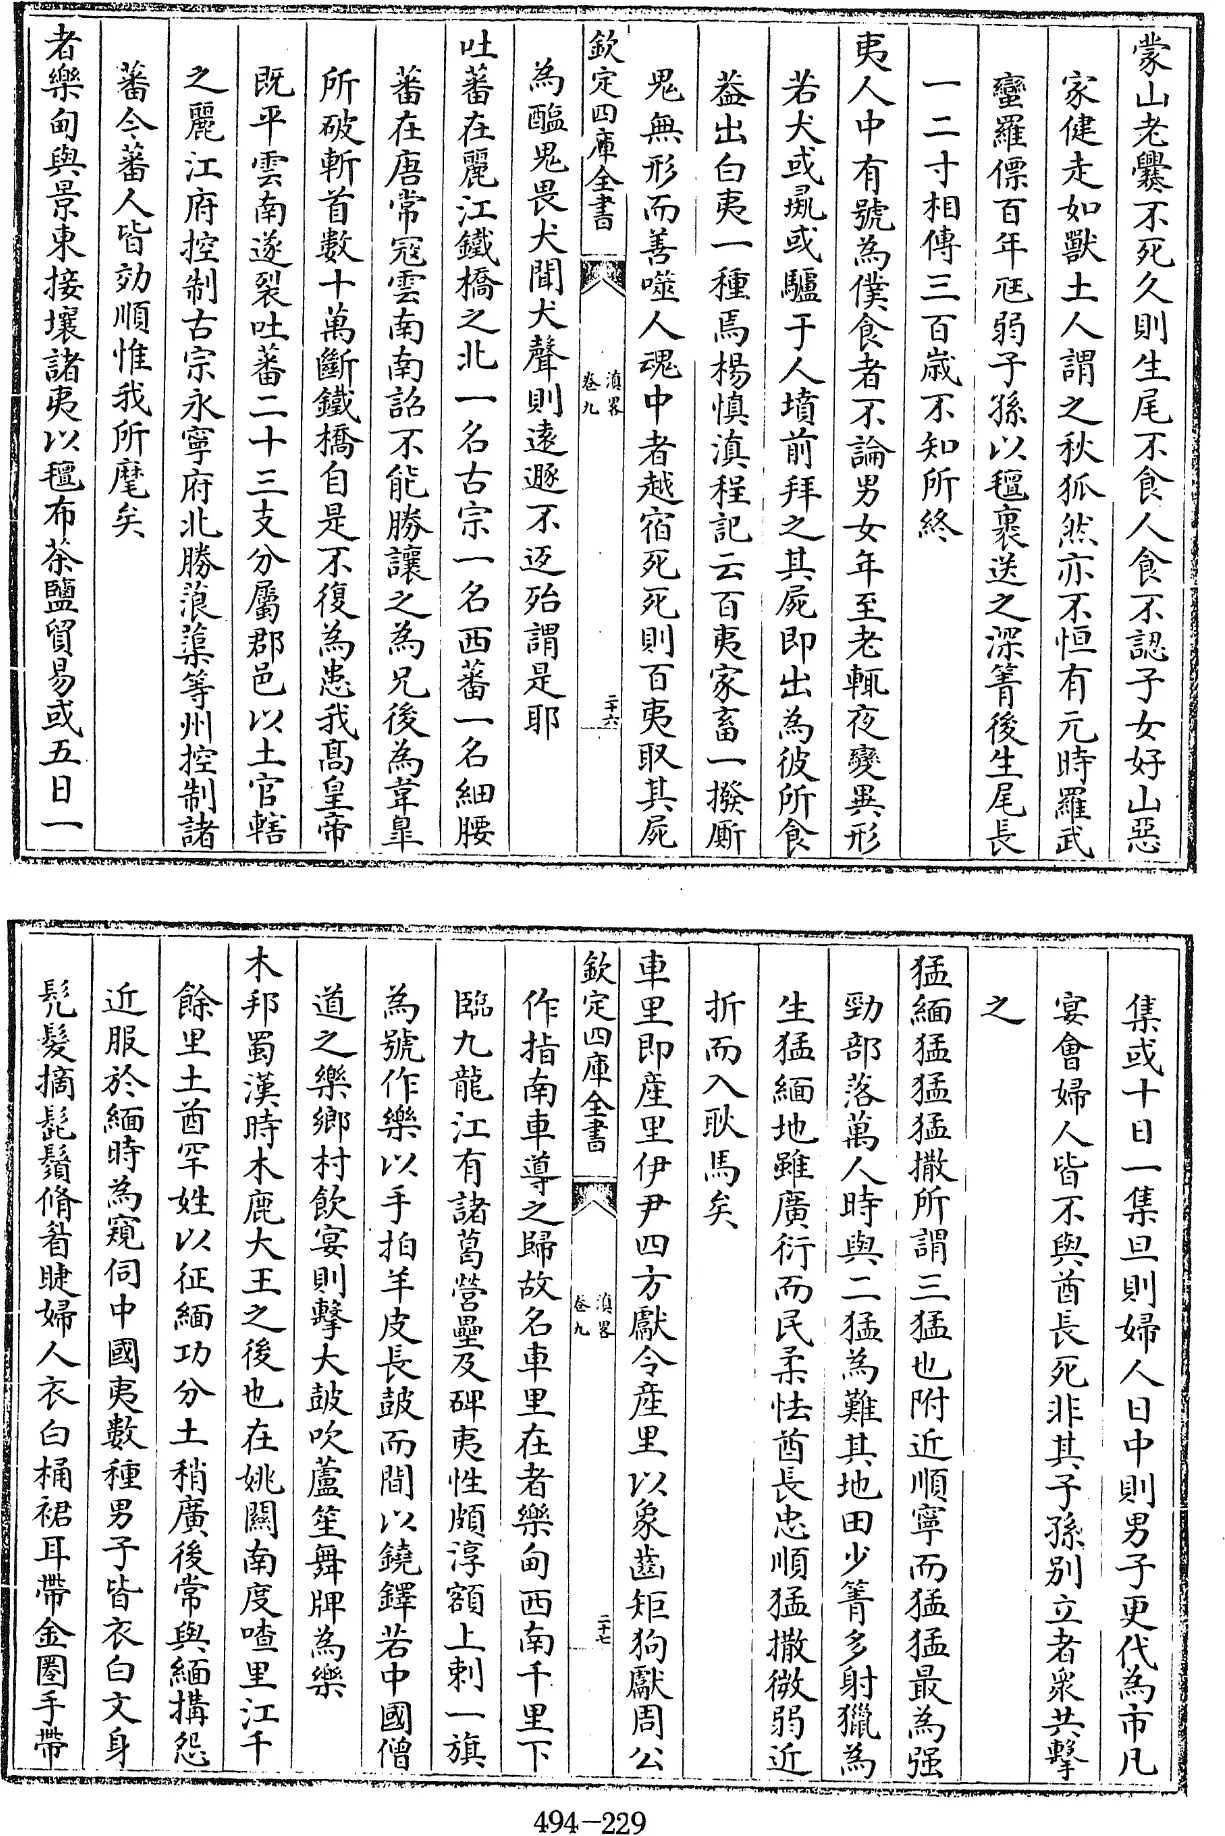 蒙山老爨不死久則生尾不食人食不認子女好山惡
家健走如獸土人謂之秋狐然亦不恒有元時羅武
蠻羅僄百年尫弱子孫以氊裹送之深箐後生尾長
一二寸相傳三百歲不知所終
夷人中有號為僕食者不論男女年至老輒夜變異形
若犬或彘或驢于人墳前拜之其屍即出為彼所食
葢出白夷一種焉楊慎滇程記云百夷家畜一撥厮
鬼無形而善噬人魂中者越宿死死則百夷取其屍
欽定四庫全書
滇畧
卷九
二十六
為醢鬼畏犬聞犬聲則遠遯不返殆謂是耶
吐蕃在麗江鐵橋之北一名古宗一名西蕃一名細腰
蕃在唐常寇雲南南詔不能勝讓之為兄後為韋臯
所破斬首數十萬斷鐵橋自是不復為患我髙皇帝
既平雲南遂裂吐蕃二十三支分屬郡邑以土官轄
之麗江府控制古宗永寧府北勝蒗蕖等州控制諸
蕃令蕃人皆効順惟我所麾矣
者樂甸與景東接壤諸夷以氊布茶鹽貿易或五日一
集或十日一集旦則婦人日中則男子更代為市凡
宴會婦人皆不與酋長死非其子孫别立者衆共擊
之
猛緬猛猛猛撒所謂三猛也附近順寧而猛猛最為强
勁部落萬人時與二猛為難其地田少箐多射獵為
生猛緬地雖廣衍而民柔怯酋長忠順猛撒微弱近
折而入耿馬矣
車里即産里伊尹四方獻令産里以象齒矩狗獻周公
欽定四庫全書
滇畧
卷九
二十七
作指南車導之歸故名車里在者樂甸西南千里下
臨九龍江有諸葛營壘及碑夷性頗淳額上刺一旗
為號作樂以手拍羊皮長鼓而間以鐃鐸若中國僧
道之樂鄉村飲宴則擊大鼓吹蘆笙舞牌為樂
木邦蜀漢時木鹿大王之後也在姚關南度喳里江千
餘里土酋罕姓以征緬功分土稍廣後常與緬搆怨
近服於緬時為窺伺中國夷數種男子皆衣白文身
髠髮摘髭鬚脩眉睫婦人衣白桶裙耳帶金圈手帶
494-229